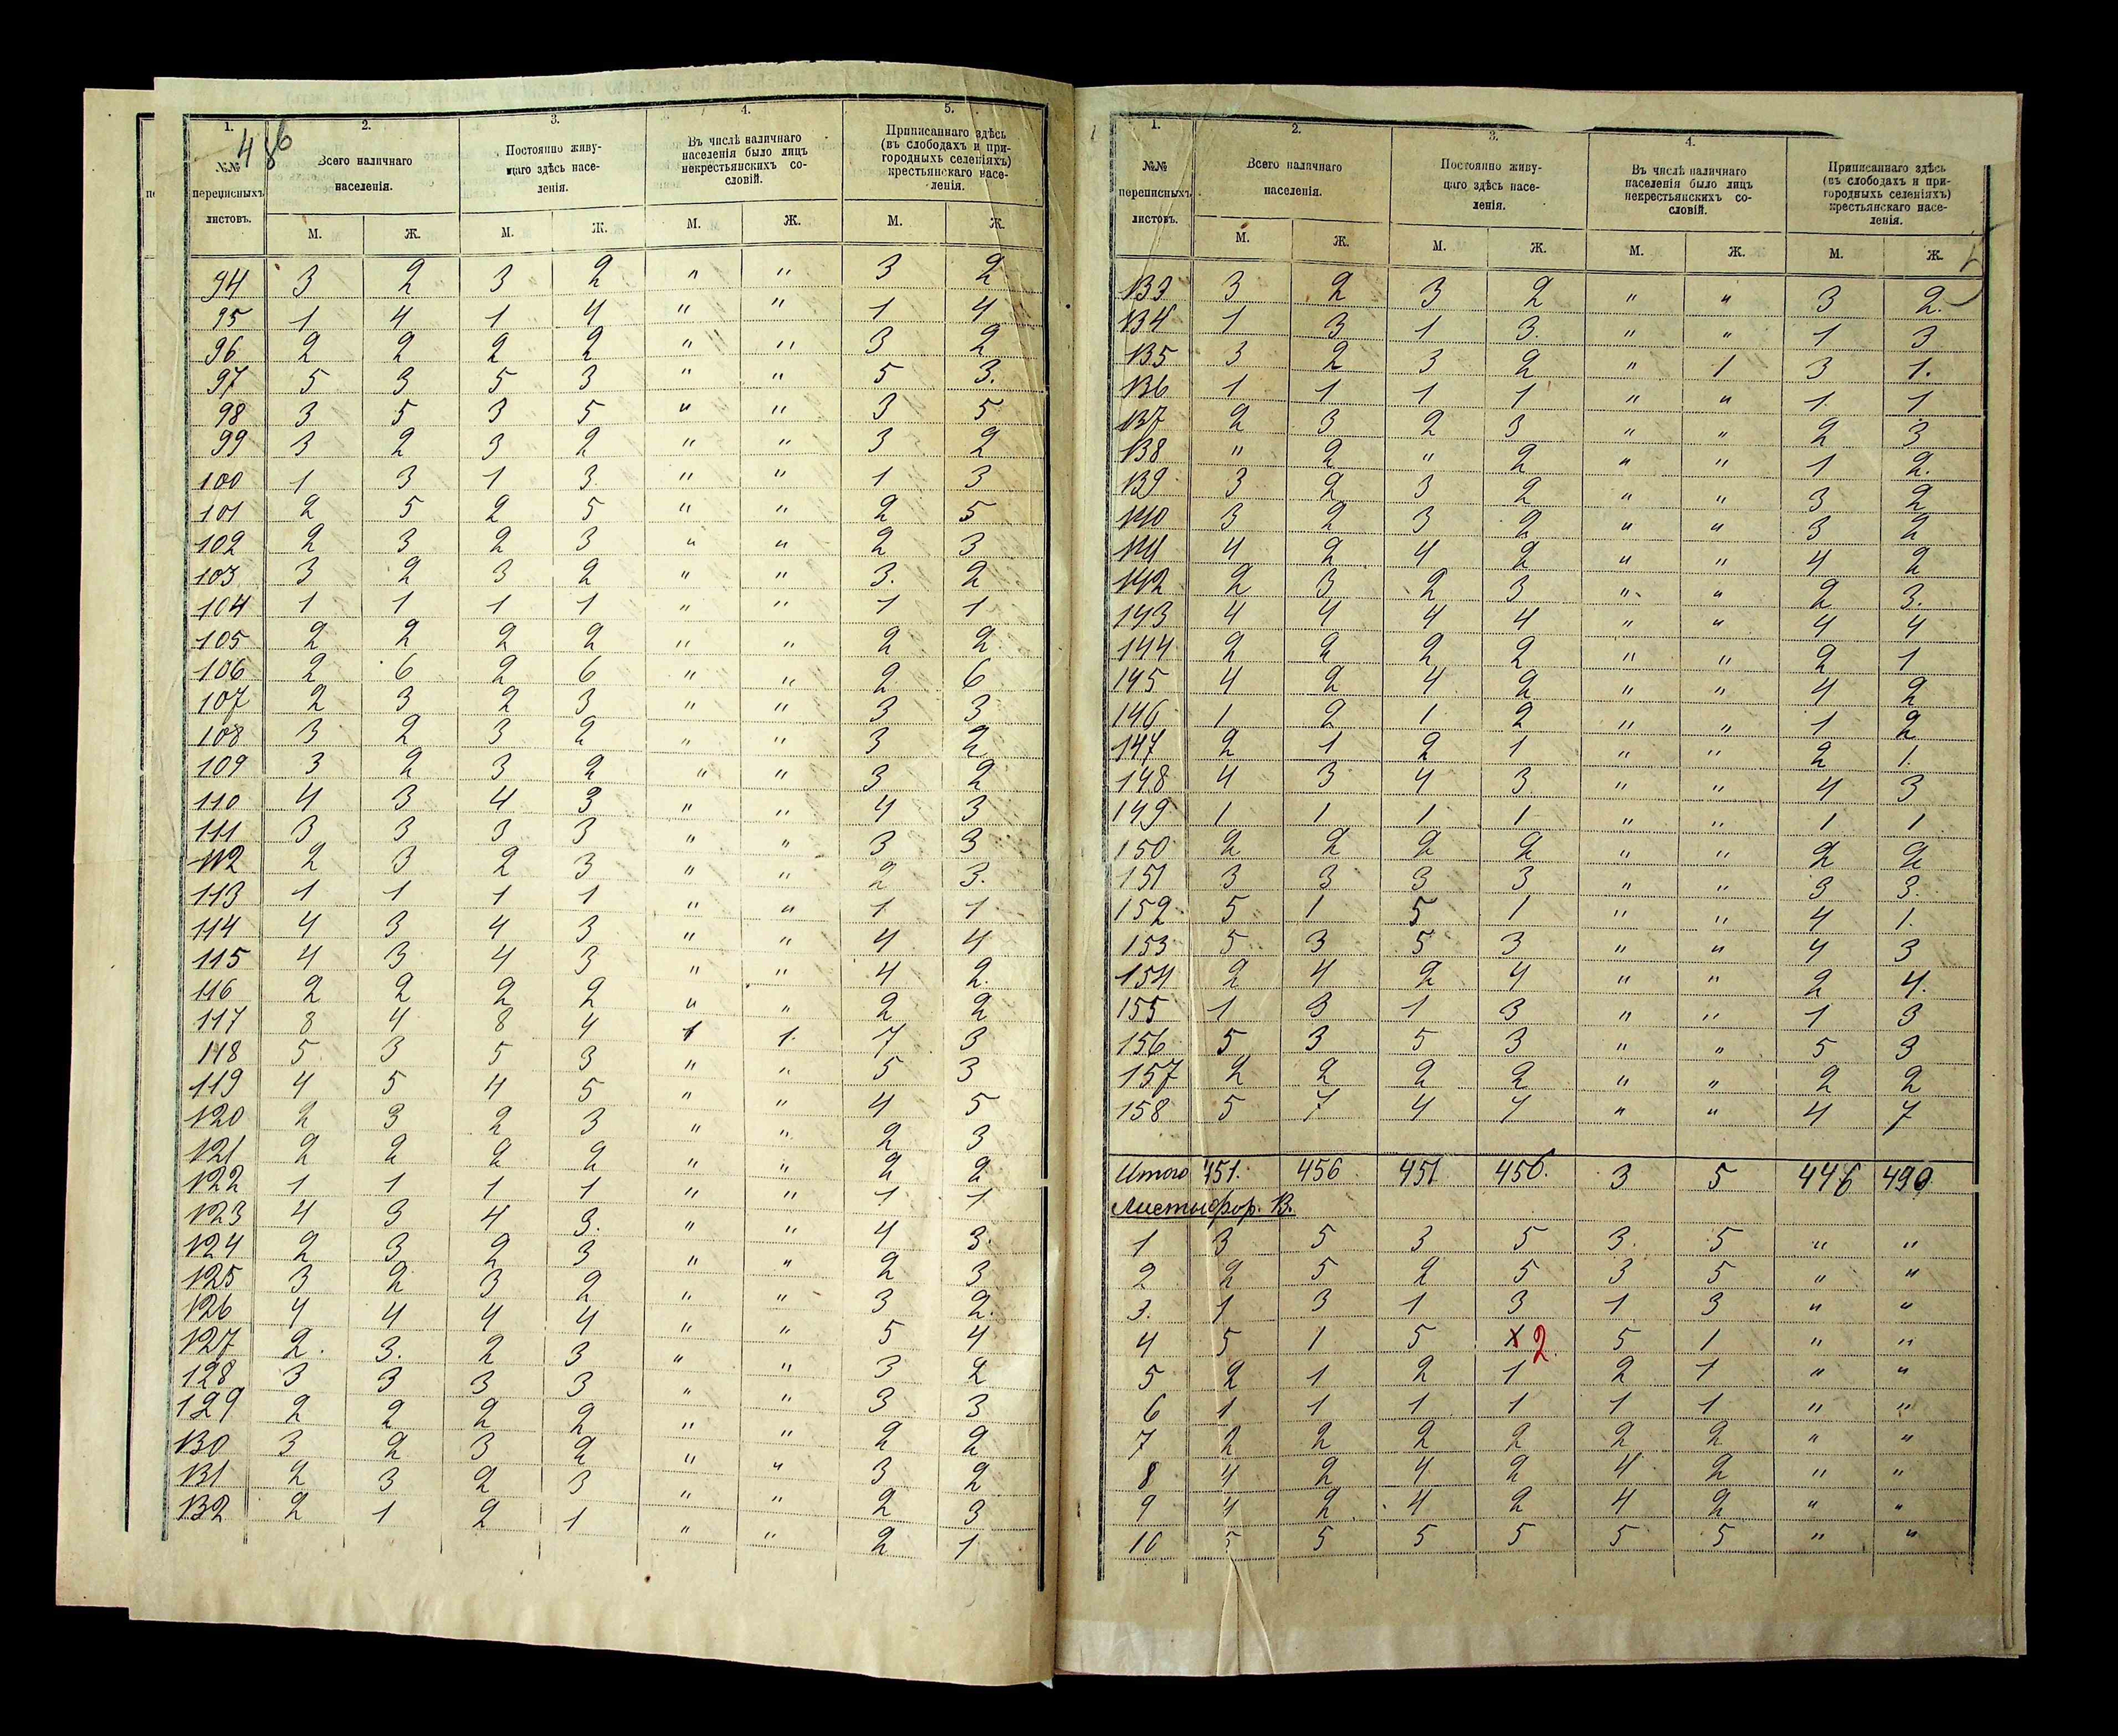 486
1. 2. 3. 4. 5.
№№ переписныхъ листовъ.
Всего наличнаго населенія.
Постоянно живу-
щаго здѣсь насе-
ленія.
Въ числѣ наличнаго
населенія было лицъ
некрестьянскихъ со-
словій.
Приписаннаго здѣсь
(въ слободахъ и при-
городныхъ селеніяхъ)
крестьянскаго насе-
ленія.
М. Ж. М. Ж. М. Ж. М. Ж.
94 3 2 3 2 " " 3 2
95 1 4 1 4 " " 1 4
96 2 2 2 2 " " 3 2
97 5 3 5 3 " " 5 3.
98 3 5 3 5 " " 3 5
99 3 2 3 2 " " 3 2
100 1 3 1 3 " " 1 3
101 2 5 2 5 " " 2 5
102 2 3 2 3 " " 2 3
103 3 2 3 2 " " 3. 2
104 1 1 1 1 " " 1 1
105 2 2 2 2 " " 2 2.
106 2 6 2 6 " " 2 6
107 2 3 2 3 " " 3 3
108 3 2 3 2 " " 3 2
109 3 2 3 2 " " 3 2
110 4 3 4 3 " " 4 3
111 3 3 3 3 " " 3 3
112 2 3 2 3 " " 2 3.
113 1 1 1 1 " " 1 1
114 4 3 4 3 " " 4 4
115 4 3 4 3 " " 4 2.
116 2 2 2 2 " " 2 2
117 8 4 8 4 1 1. 7 3
118 5 3 5 3 " " 5 3
119 4 5 4 5 " " 4 5
120 2 3 2 3 " " 2 3
121 2 2 2 2 " " 2 2
122 1 1 1 1 " " 1 1
123 4 3 4 3. " " 4 3.
124 2 3 2 3 " " 2 3
125 3 2 3 2 " " 3 2.
126 4 4 4 4 " " 5 4
127 2. 3. 2 3 " " 3 2
128 3 3 3 3 " " 3 3
129 2 2 2 2 " " 2 2
130 3 2 3 2 " " 3 2
131 2 3 2 3 " " 2 3
132 2 1 2 1 " " 2 1
1. 2. 3. 4.
№№ переписныхъ листовъ.
Всего наличнаго населенія.
Постоянно живу-
щаго здѣсь насе-
ленія.
Въ числѣ наличнаго
населенія было лицъ
некрестьянскихъ со-
словій.
Приписаннаго здѣсь
(въ слободахъ и при-
городныхъ селеніяхъ)
крестьянскаго насе-
ленія.
М. Ж. М. Ж. М. Ж. М. Ж.
133 3 2 3 2 " " 3 2.
134 1 3 1 3. " " 1 3
135 3 2 3 2 " 1 3 1.
136 1 1 1 1 " " 1 1
137 2 3 2 3 " " 2 3
138 " 2 " 2 " " 1 2.
139 3 2 3 2 " " 3 2
140 3 2 3 2 " " 3 2
141 4 2 4 2 " " 4 2
142 2 3 2 3 " " 2 3.
143 4 4 4 4 " " 4 4
144 2 2 2 2 " " 2 1
145 4 2 4 2 " " 4 2
146 1 2 1 2 " " 1 2
147 2 1 2 1 " " 2 1.
148 4 3 4 3 " " 4 3
149 1 1 1 1 " " 1 1
150 2 2 2 2 " " 2 2
151 3 3 3 3 " " 3 3.
152 5 1 5 1 " " 4 1.
153 5 3 5 3 " " 4 3
154 2 4 2 4 " " 2 4.
155 1 3 1 3 " " 1 3
156 5 3 5 3 " " 5 3
157 2 2 2 2 " " 2 2
158 5 7 4 7 " " 4 7
Итого 451. 456 451 456. 3 5 446 490
Листы фор. В.
1 3 5 3 5 3. 5 " "
2 2 5 2 5 3 5 " "
3. 1 3 1 3 1 3 " "
4 5 1 5 2. 5 1 " "
5 2 1 2 1 2 1 " "
6 1 1 1 1 1 1 " "
7 2 2 2 2 2 2 " "
8 4 2 4 2 4 2 " "
9 4 2 4 2 4 2 " "
10 5 5 5 5 5 5 " "